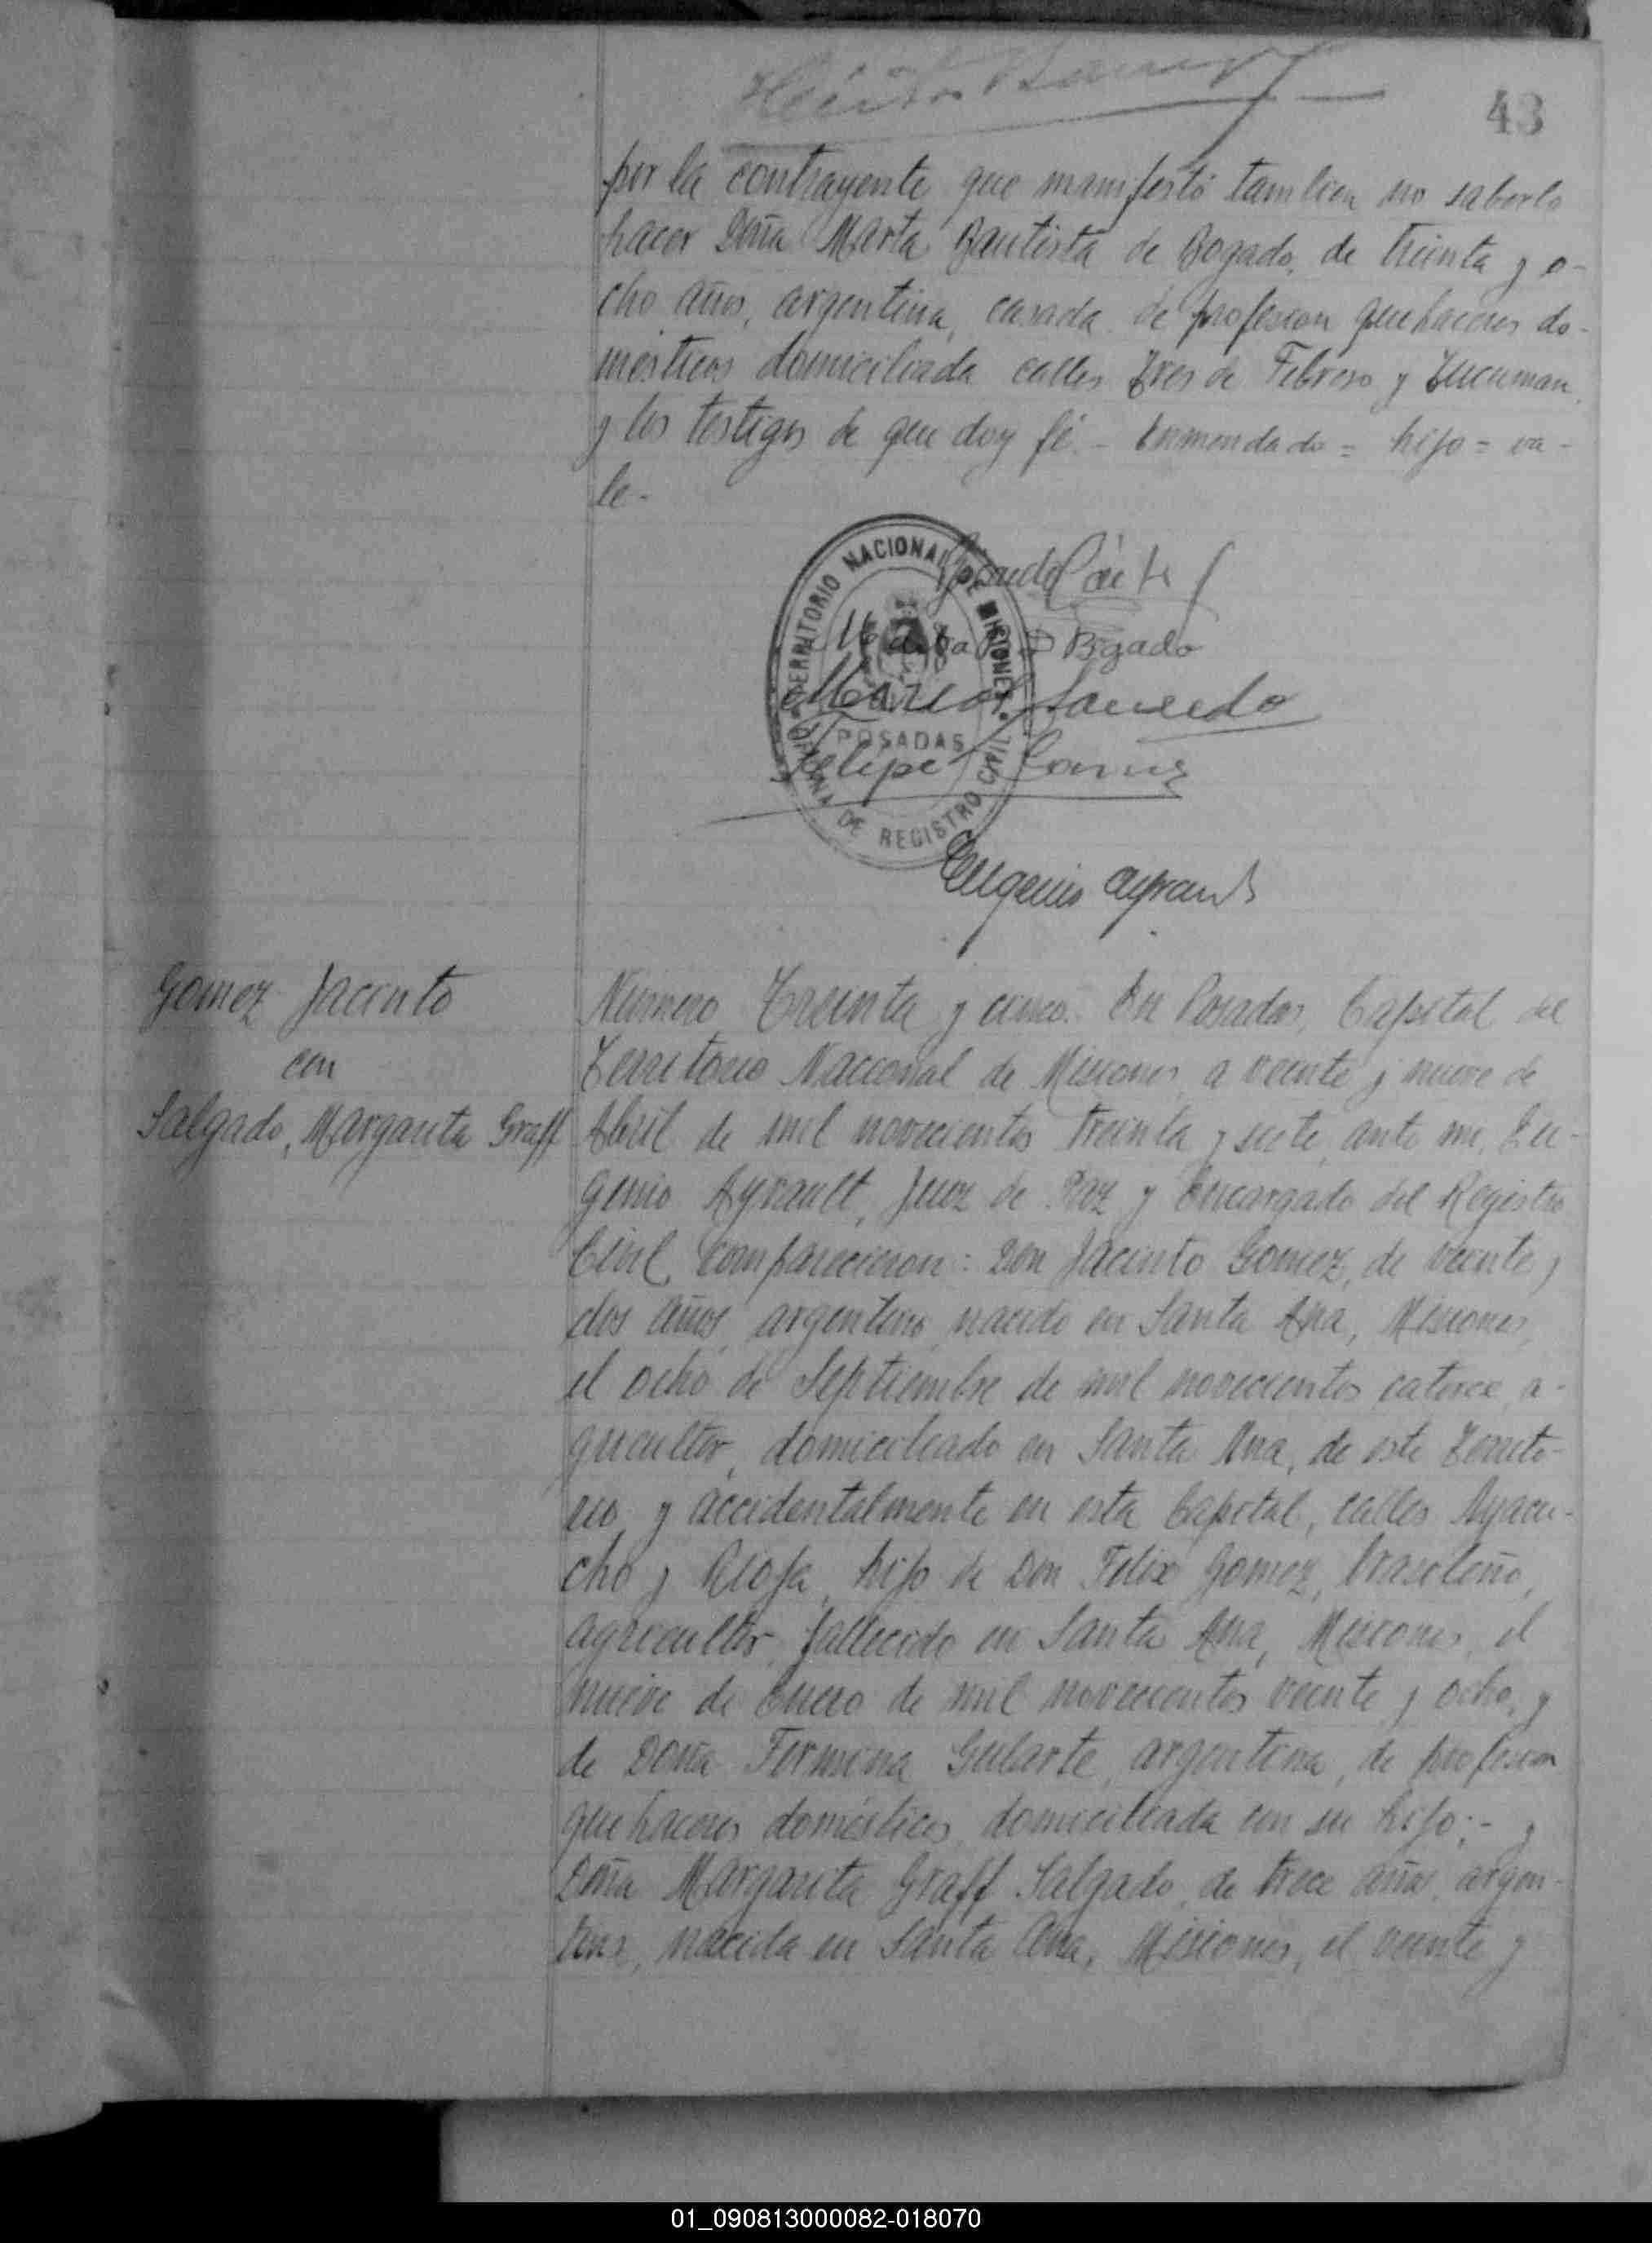 43
por la contrayente que manifestó tambien no saberlo
hacer Doña Marta Bautista de Bogado, de treinta y o-
cho años, argentina, casada, de profesion quehaceres do-
mésticos domiciliada calles Tres de Febrero y Tucuman,
y los testigos de que doy fé.- Enmendado = hijo = va-
le.-
TERRITORIO NACIONAL DE MISIONES
POSADAS
OFICINA DE REGISTRO CIVIL
Marta B D Bogado
Felipe
Eugenio Ayrault
Gomez Jacinto
con
Salgado, Margarita Graff
Numero Treinta y cinco. En Posadas, Capital del
Territorio Nacional de Misiones, a veinte y nueve de
Abril de mil novecientos treinta y siete, ante mi, Eu-
genio Ayrault, Juez de Paz y Encargado del Registro
Civil, comparecieron: Don Jacinto Gomez, de veinte y
dos años, argentino, nacido en Santa Ana, Misiones,
el ocho de Septiembre de mil novecientos catorce, a-
gricultor, domiciliado en Santa Ana, de este Territo-
rio, y accidentalmente en esta Capital, calles Ayacu-
cho y Rioja, hijo de Don Felix Gomez, brasileño,
agricultor, fallecido en Santa Ana, Misiones, el
nueve de Enero de mil novecientos veinte y ocho, y
de Doña Fermina Gularte, argentina, de profesion
quehaceres domésticos, domiciliada con su hijo;- y
Doña Margarita Graff Salgado, de trece años, argen-
tina, nacida en Santa Ana, Misiones, el veinte y
01_090813000082-018070